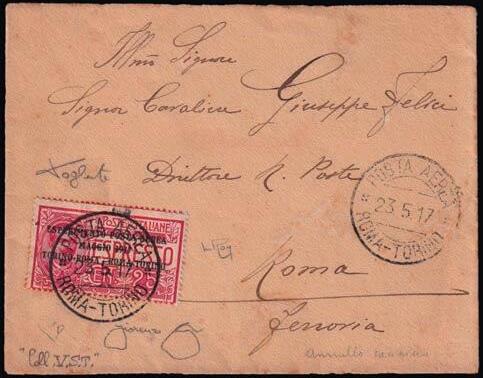 Illmo Signore
Signor Cavaliere Giuseppe Felici
Direttore R. Poste
Roma
Ferrovia
POSTA AEREA
23.5.17
ROMA-TORINO
POSTE ITALIANE
ESPERIMENTO POSTA AEREA
MAGGIO 1917
TORINO-ROMA · ROMA-TORINO
25
POSTA AEREA
23.5.17
ROMA-TORINO
"Coll. V.S.T."